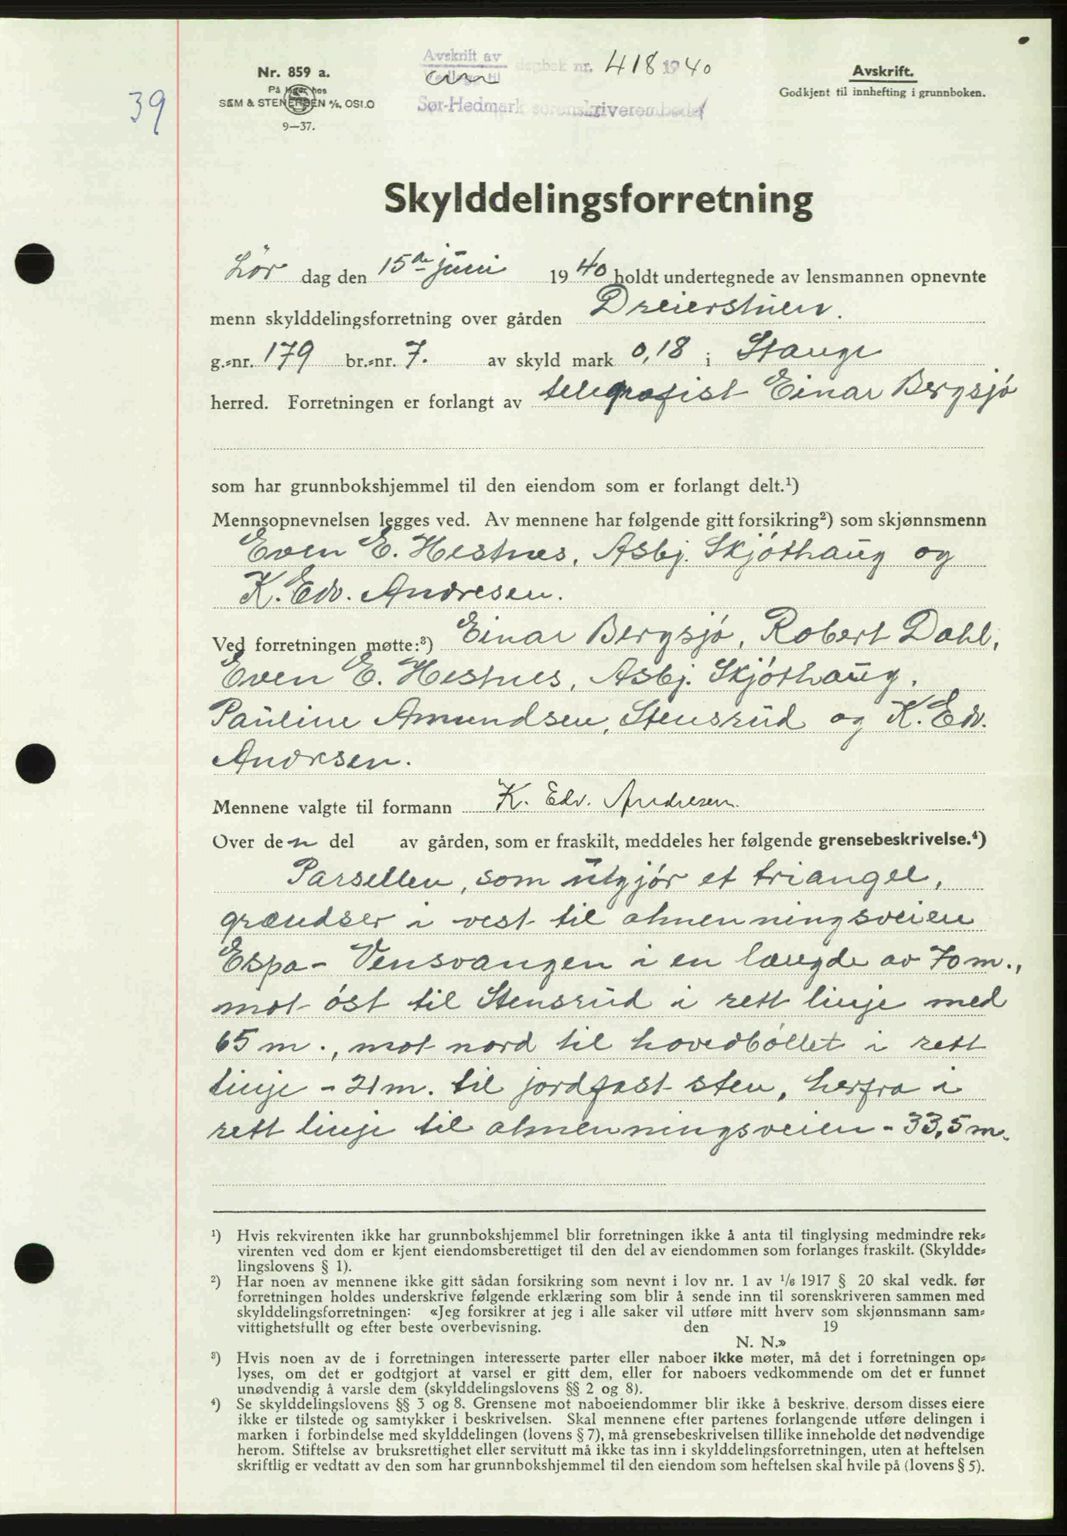 39
Nr. 859 a.
På lager hos
SÆM & STENERSEN A/S, OSLO
9—37.
Avskrift av dagbok nr. 418 1940
Sør-Hedmark sorenskriverembede
Avskrift.
Godkjent til innhefting i grunnboken.
Skylddelingsforretning
Lør dag den 15de juni 1940 holdt undertegnede av lensmannen opnevnte
menn skylddelingsforretning over gården Dreierstuen.
g.-nr. 179 br.-nr. 7. av skyld mark 0,18 i Stange
herred. Forretningen er forlangt av telegrafist Einar Bergsjø
som har grunnbokshjemmel til den eiendom som er forlangt delt.¹)
Mennsopnevnelsen legges ved. Av mennene har følgende gitt forsikring²) som skjønnsmenn
Even E. Hestnes, Asbj. Skjøthaug og
K. Edv. Andresen.
Ved forretningen møtte:³) Einar Bergsjø, Robert Dahl,
Even E. Hestnes, Asbj. Skjøthaug,
Pauline Amundsen, Stensrud og K. Edv.
Andrsen.
Mennene valgte til formann K. Edv. Andresen.
Over den del av gården, som er fraskilt, meddeles her følgende grensebeskrivelse.⁴)
Parsellen, som utgjør et triangel,
grændser i vest til almenningsveien
Espa – Vensvangen i en længde av 70 m.,
mot øst til Stensrud i rett linje med
65 m., mot nord til hovedbøllet i rett
linje – 21 m. til jordfast sten, herfra i
rett linje til almenningsveien – 33,5 m.
¹) Hvis rekvirenten ikke har grunnbokshjemmel blir forretningen ikke å anta til tinglysing medmindre rek-
virenten ved dom er kjent eiendomsberettiget til den del av eiendommen som forlanges fraskilt. (Skyldde-
lingslovens § 1).
²) Har noen av mennene ikke gitt sådan forsikring som nevnt i lov nr. 1 av 1/6 1917 § 20 skal vedk. før
forretningen holdes underskrive følgende erklæring som blir å sende inn til sorenskriveren sammen med
skylddelingsforretningen: «Jeg forsikrer at jeg i alle saker vil utføre mitt hverv som skjønnsmann sam-
vittighetsfullt og efter beste overbevisning. den 19
N. N.»
³) Hvis noen av de i forretningen interesserte parter eller naboer ikke møter, må det i forretningen op-
lyses, om det er godtgjort at varsel er gitt dem, eller for naboers vedkommende om det er funnet
unødvendig å varsle dem (skylddelingslovens §§ 2 og 8).
⁴) Se skylddelingslovens §§ 3 og 8. Grensene mot naboeiendommer blir ikke å beskrive, dersom disses eiere
ikke er tilstede og samtykker i beskrivelsen. Skal mennene efter partenes forlangende utføre delingen i
marken i forbindelse med skylddelingen (lovens § 7), må grensebeskrivelsen tillike inneholde det nødvendige
herom. Stiftelse av bruksrettighet eller servitutt må ikke tas inn i skylddelingsforretningen, uten at heftelsen
skriftlig er vedtatt av den som har grunnbokshjemmel til den eiendom som heftelsen skal hvile på (lovens § 5).